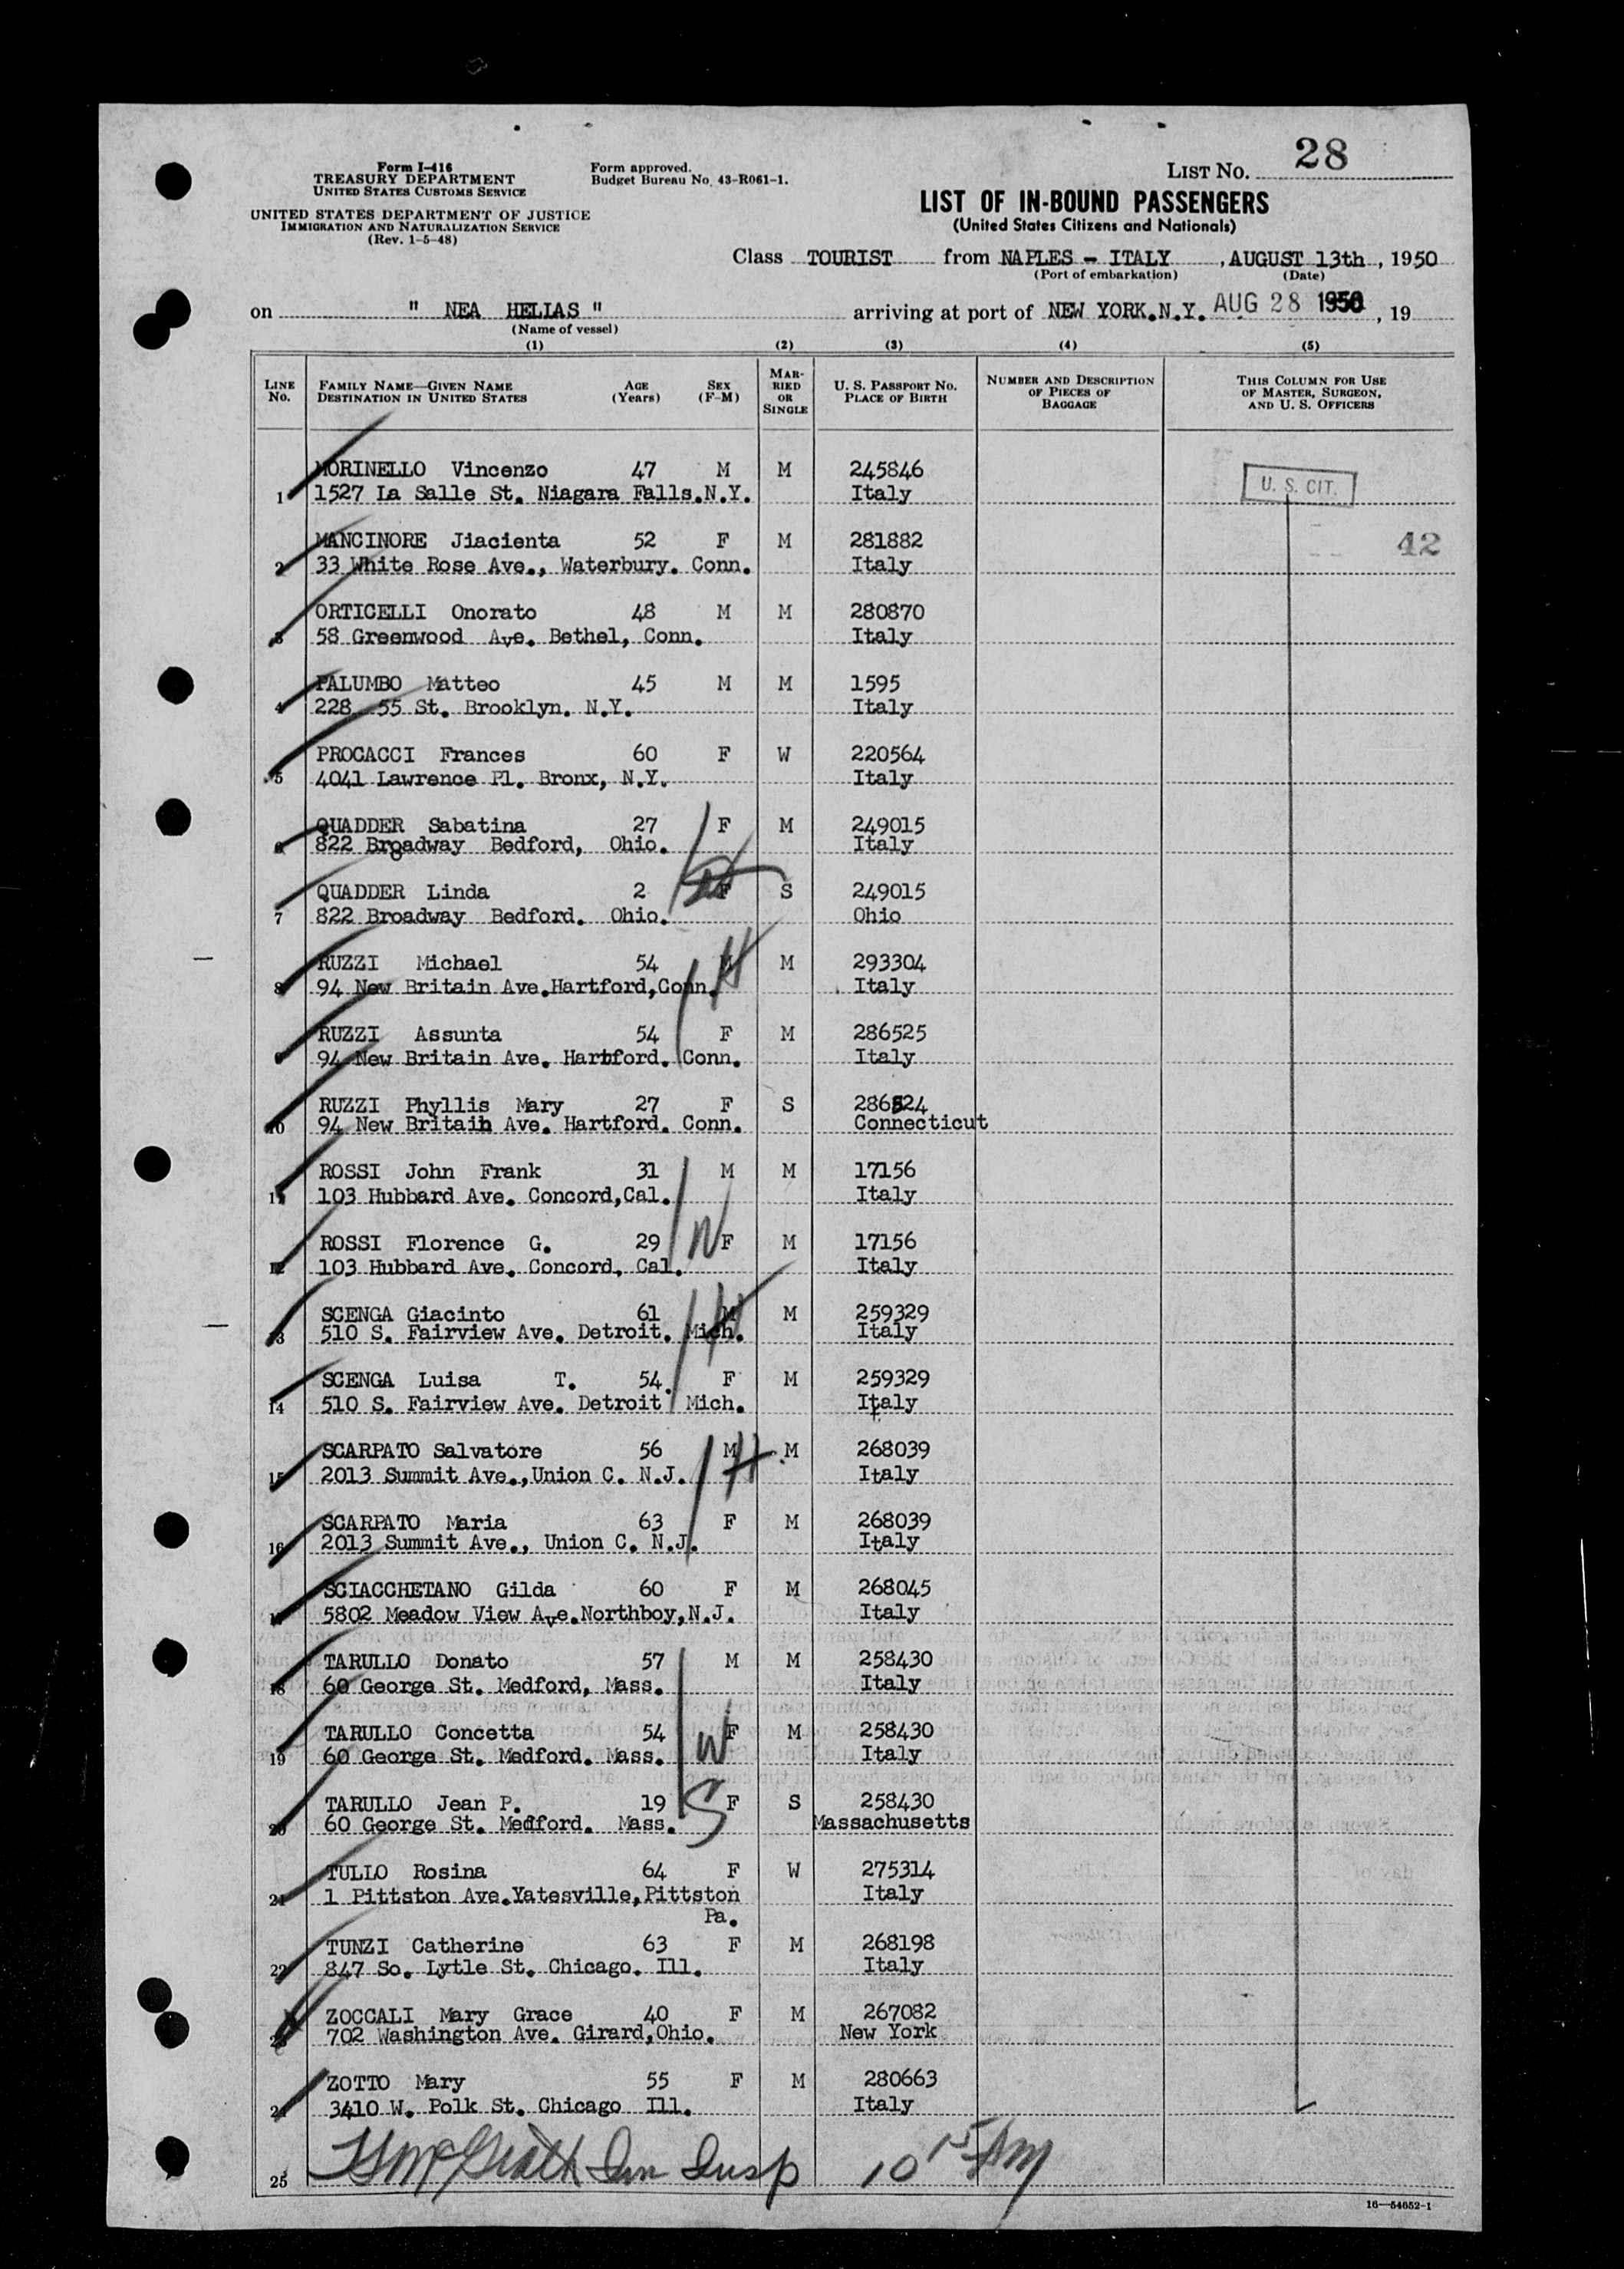 28
Form I-416
TREASURY DEPARTMENT
UNITED STATES CUSTOMS SERVICE
UNITED STATES DEPARTMENT OF JUSTICE
IMMIGRATION AND NATURALIZATION SERVICE
(Rev. 1-5-48)
Form approved.
Budget Bureau No. 43-R061-1.
LIST No.
LIST OF IN-BOUND PASSENGERS
(United States Citizens and Nationals)
Class TOURIST from NAPLES - ITALY, AUGUST 13th, 1950
(Port of embarkation) (Date)
on " NEA HELIAS " arriving at port of NEW YORK.N.Y. AUG 28 1950, 19
(Name of vessel)
(1) (2) (3) (4) (5)
LINE No. FAMILY NAME—GIVEN NAME DESTINATION IN UNITED STATES AGE (Years) SEX (F-M) MARRIED OR SINGLE U. S. PASSPORT NO. PLACE OF BIRTH NUMBER AND DESCRIPTION OF PIECES OF BAGGAGE THIS COLUMN FOR USE OF MASTER, SURGEON, AND U. S. OFFICERS
MORINELLO Vincenzo 47 M M 245846
1 1527 La Salle St. Niagara Falls.N.Y. Italy U. S. CIT.
MANCINORE Jiacienta 52 F M 281882 42
2 33 White Rose Ave., Waterbury. Conn. Italy
ORTICELLI Onorato 48 M M 280870
3 58 Greenwood Ave. Bethel, Conn. Italy
PALUMBO Matteo 45 M M 1595
4 228 55 St. Brooklyn. N.Y. Italy
PROCACCI Frances 60 F W 220564
5 4041 Lawrence Pl. Bronx, N.Y. Italy
QUADDER Sabatina 27 F M 249015
6 822 Broadway Bedford, Ohio. Italy
QUADDER Linda 2 F S 249015
7 822 Broadway Bedford. Ohio. Ohio
RUZZI Michael 54 M M 293304
8 94 New Britain Ave.Hartford,Conn. Italy
RUZZI Assunta 54 F M 286525
9 94 New Britain Ave. Hartford. Conn. Italy
RUZZI Phyllis Mary 27 F S 286524
10 94 New Britain Ave. Hartford. Conn. Connecticut
ROSSI John Frank 31 M M 17156
11 103 Hubbard Ave. Concord,Cal. Italy
ROSSI Florence G. 29 W F M 17156
12 103 Hubbard Ave. Concord, Cal. Italy
SCENGA Giacinto 61 M M 259329
13 510 S. Fairview Ave. Detroit. Mich. Italy
SCENGA Luisa T. 54. F M 259329
14 510 S. Fairview Ave. Detroit Mich. Italy
SCARPATO Salvatore 56 M H M 268039
15 2013 Summit Ave.,Union C. N.J. Italy
SCARPATO Maria 63 F M 268039
16 2013 Summit Ave., Union C. N.J. Italy
SCIACCHETANO Gilda 60 F M 268045
17 5802 Meadow View Ave.Northboy,N.J. Italy
TARULLO Donato 57 M M 258430
18 60 George St. Medford, Mass. Italy
TARULLO Concetta 54 W F M 258430
19 60 George St. Medford. Mass. Italy
TARULLO Jean P. 19 S F S 258430
20 60 George St. Medford. Mass. Massachusetts
TULLO Rosina 64 F W 275314
21 1 Pittston Ave.Yatesville,Pittston Italy
Pa.
TUNZI Catherine 63 F M 268198
22 847 So. Lytle St. Chicago. Ill. Italy
ZOCCALI Mary Grace 40 F M 267082
23 702 Washington Ave. Girard,Ohio. New York
ZOTTO Mary 55 F M 280663
24 3410 W. Polk St. Chicago Ill. Italy
25 Imm Insp 10 15 AM
16—54652-1